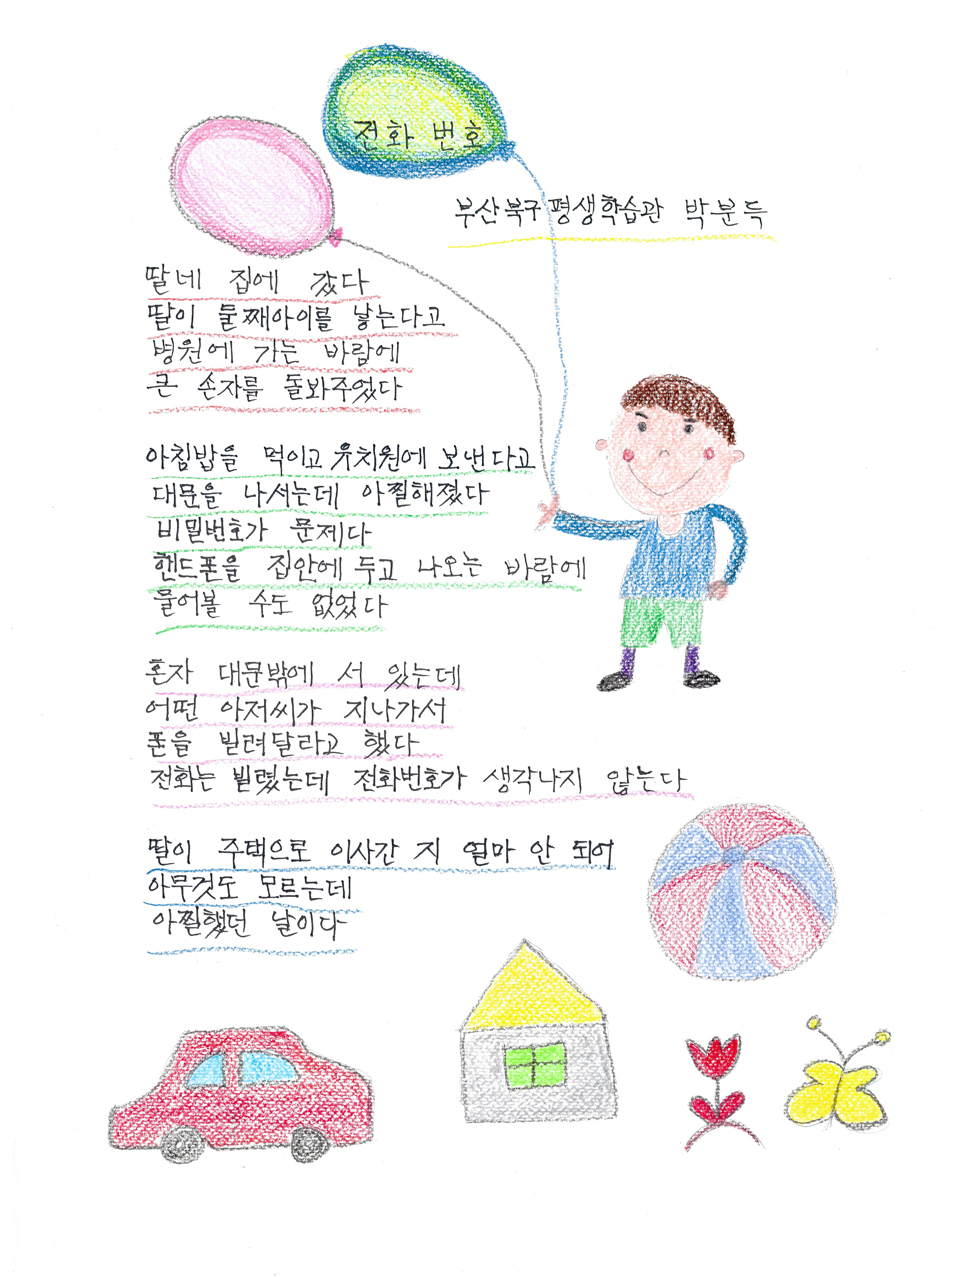 전화 번호
부산북구평생학습관 박분득
딸네 집에 갔다
딸이 둘째아이를 낳는다고
병원에 가는 바람에
큰 손자를 돌봐주었다
아침밥을 먹이고 유치원에 보낸다고
대문을 나서는데 아찔해졌다
비밀번호가 문제다
핸드폰을 집안에 두고 나오는 바람에
물어볼 수도 없었다
혼자 대문밖에 서 있는데
어떤 아저씨가 지나가서
폰을 빌려달라고 했다
전화는 빌렸는데 전화번호가 생각나지 않는다
딸이 주택으로 이사간 지 얼마 안 되어
아무것도 모르는데
아찔했던 날이다